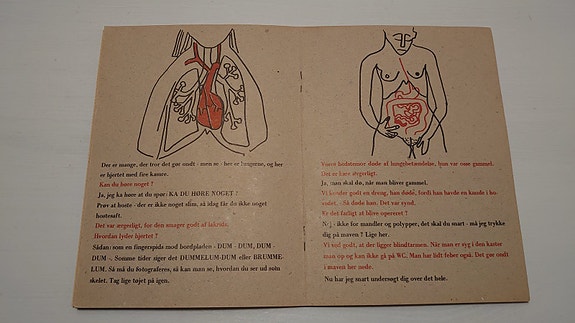 Der er mange, der tror det gør ondt - men se - her er lungerne, og her
er hjertet med fire kamre.
Kan du høre noget?
Ja, jeg ka høre at du spør: KA DU HØRE NOGET?
Prøv at hoste - der er ikke noget slim, så idag får du ikke noget
hostesaft.
Det var ærgerligt, for den smager godt af lakrids.
Hvordan lyder hjertet?
Sådan: som en fingerspids mod bordpladen - DUM - DUM, DUM -
DUM -. Somme tider siger det DUMMELUM-DUM eller BRUMME-
LUM. Så må du fotograferes, så kan man se, hvordan du ser ud som
skelet. Tag lige tøjet på igen.
Vores bedstemor døde af lungebetændelse, hun var osse gammel.
Det er bare ærgerligt.
Ja, man skal dø, når man bliver gammel.
Vi kender godt en dreng, han døde, fordi han havde en knude i ho-
vedet. - Så døde han. Det var synd.
Er det farligt at blive opereret?
Nej - ikke for mandler og polypper, det skal du snart - må jeg trykke
dig på maven? Lige her.
Vi ved godt, at der ligger blindtarmen. Når man er syg i den kaster
man op og kan ikke gå på WC. Man har lidt feber også. Det gør ondt
i maven her nede.
Nu har jeg snart undersøgt dig over det hele.